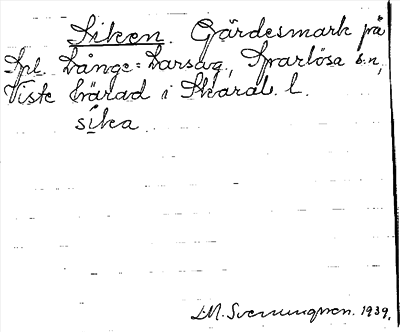 Siken. Gärdesmark på
Spl. Långe=Larsavg., Sparlösa s:n,
Viste härad i Skarab. l.
sika
S.M. Svenungsson. 1939.